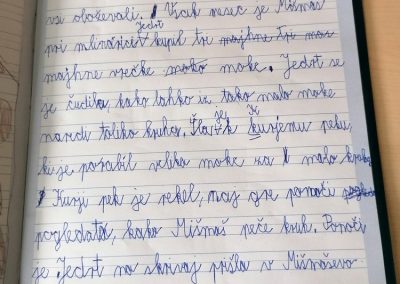 vsi oboževali. Vsak mesec je Mišmaš
pri mlinarici Jedrt kupil tri majhne tri
majhne vrečke moko moke. Jedrt se
je čudila, kako lahko iz tako malo moke
naredi toliko kruha. Šla je k kurjemu peku,
ki je porabil veliko moke za malo kruha.
Kurji pek je rekel, naj gre ponoči
pogledata, kako Mišmaš peče kruh. Ponoči
je Jedrt na skrivaj prišla v Mišmaševo